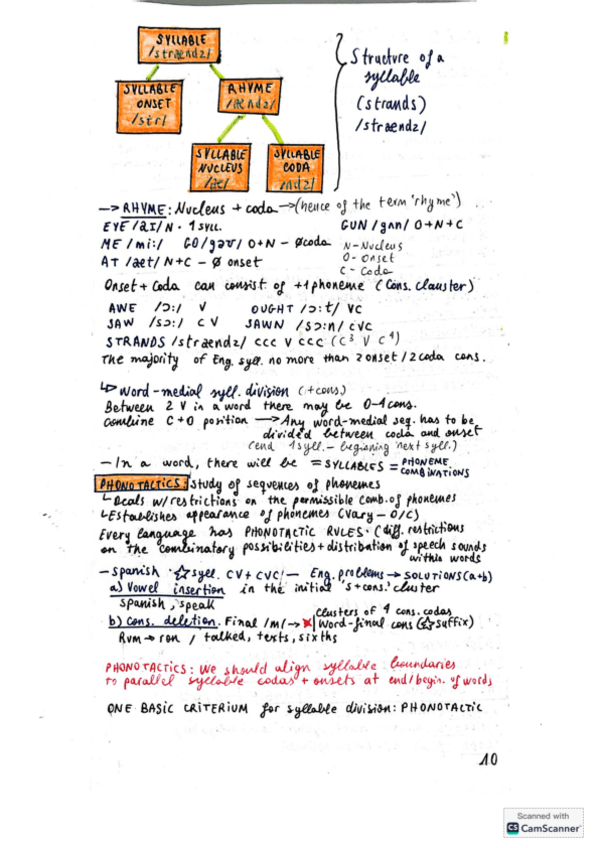 SYLLABLE
/strændz/
SYLLABLE
ONSET
/str/
RHYME
/ændz/
SYLLABLE
NUCLEUS
/æ/
SYLLABLE
CODA
/ndz/
Structure of a
syllable
(strands)
/strændz/
—> RHYME: Nucleus + coda —> (hence of the term 'rhyme')
EYE /aɪ/ N · 1 syll. GUN /gʌn/ O+N+C
ME /mi:/ GO /gəʊ/ O+N – øcoda N–Nucleus
AT /æt/ N+C – ø onset O–Onset
C–Coda
Onset + Coda can consist of +1 phoneme (Cons. clauster)
AWE /ɔ:/ V OUGHT /ɔ:t/ VC
SAW /sɔ:/ CV SAWN /sɔ:n/ CVC
STRANDS /strændz/ CCC V CCC (C³ V C⁴)
The majority of Eng. syll. no more than 2 onset / 2 coda cons.
↳ Word-medial syll. division (+cons.)
Between 2 V in a word there may be 0-4 cons.
Combine C+O position —> Any word-medial seq. has to be
divided between coda and onset
(end 1 syll. – beginning next syll.)
– In a word, there will be = SYLLABLES = PHONEME
COMBINATIONS
PHONOTACTICS: Study of sequences of phonemes
↳ Deals w/ restrictions on the permissible comb. of phonemes
↳ Establishes appearance of phonemes (Vary – O/C)
Every language has PHONOTACTIC RULES · (diff. restrictions
on the combinatory possibilities + distribution of speech sounds
within words
– Spanish · ☆ syll. CV + CVC – Eng. problems → SOLUTIONS (a+b)
a) Vowel insertion in the initial 's+cons.' cluster
Spanish, speak
b) Cons. deletion. Final /m/ → x | clusters of 4 cons. codas
word-final cons (☆ suffix)
Rum → ron / talked, texts, sixths
PHONOTACTICS: We should align syllable boundaries
to parallel syllable codas + onsets at end/begin. of words
ONE BASIC CRITERIUM for syllable division: PHONOTACTIC
10
Scanned with
CS CamScanner